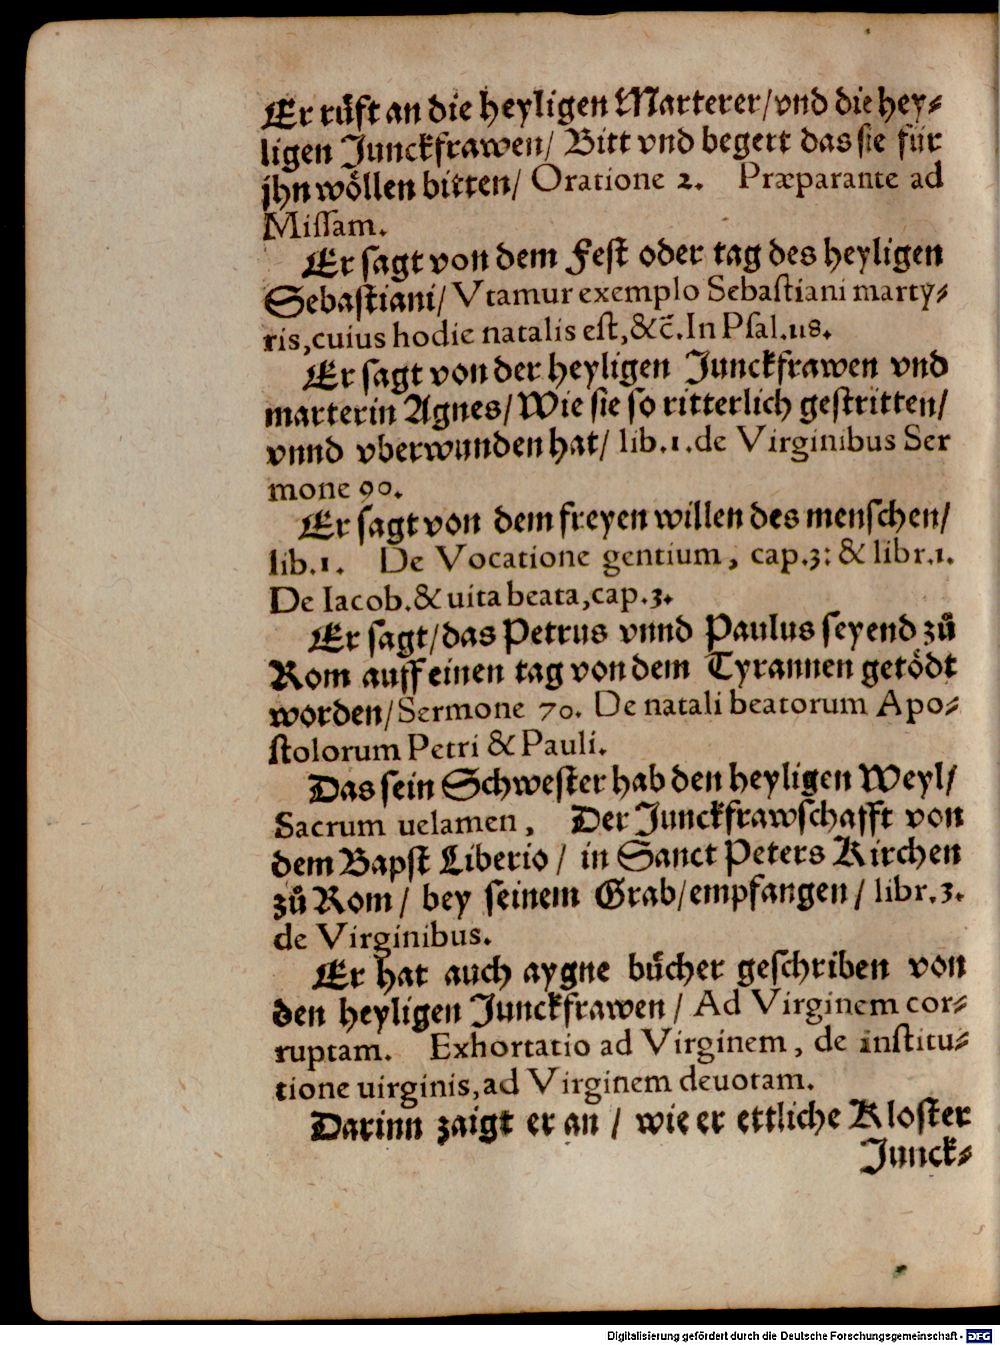 Er růfft an die heyligen Marterer/vnd die hey-
ligen Junckfrawen/ Bitt vnd begert das sie für
jhn wöllen bitten/ Oratione 2. Præparante ad
Missam.
Er sagt von dem Fest oder tag des heyligen
Sebastiani/ Vtamur exemplo Sebastiani marty-
ris, cuius hodie natalis est, &c̄. In Psal. 118.
Er sagt von der heyligen Junckfrawen vnd
marterin Agnes/ Wie sie so ritterlich gestritten/
vnnd vberwunden hat/ lib. 1. de Virginibus Ser
mone 90.
Er sagt von dem freyen willen des menschen/
lib. 1. De Vocatione gentium, cap. 3: & libr. 1.
De Iacob. & uita beata, cap. 3.
Er sagt/ das Petrus vnnd Paulus seyend zů
Rom auff einen tag von dem Tyrannen getödt
worden/ Sermone 70. De natali beatorum Apo-
stolorum Petri & Pauli.
Das sein Schwester hab den heyligen Weyl/
Sacrum uelamen, Der Junckfrawschafft von
dem Bapst Liberio/ in Sanct Peters Kirchen
zů Rom/ bey seinem Grab/ empfangen/ libr. 3.
de Virginibus.
Er hat auch aygne bücher geschriben von
den heyligen Junckfrawen/ Ad Virginem cor-
ruptam. Exhortatio ad Virginem, de institu-
tione uirginis, ad Virginem deuotam.
Darinn zaigt er an/ wie er ettliche Kloster
Junck-
Digitalisierung gefördert durch die Deutsche Forschungsgemeinschaft - DFG